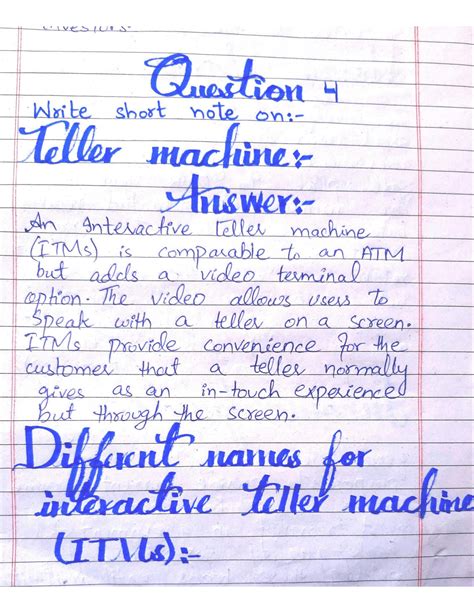 investors.
Question 4
Write short note on:-
Teller machine:-
Answer:-
An Interactive teller machine
(ITMs) is comparable to an ATM
but adds a video terminal
option. The video allows users to
speak with a teller on a screen.
ITMs provide convenience for the
customer that a teller normally
gives as an in-touch experienced
but through the screen.
Different names for
interactive teller machine
(ITMs):-